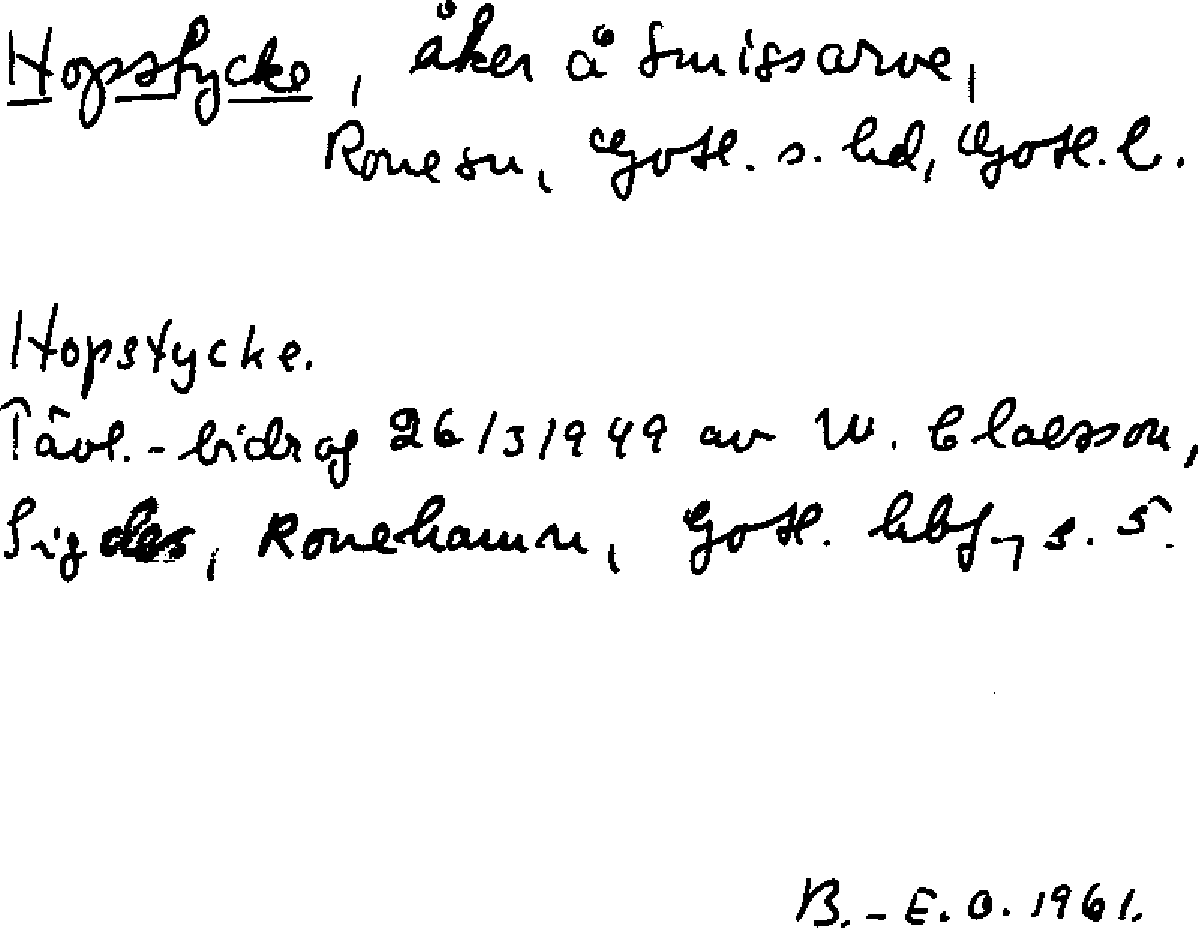 Hopstycke, åker å Smissarve,
Rone sn, Gotl. s. hd, Gotl. l.
Hopstycke.
Tävl.-bidrag 26/3 1949 av W. Claesson,
Sigdes, Ronehamn, Gotl. hbf., s. 5.
B.-E.O. 1961.